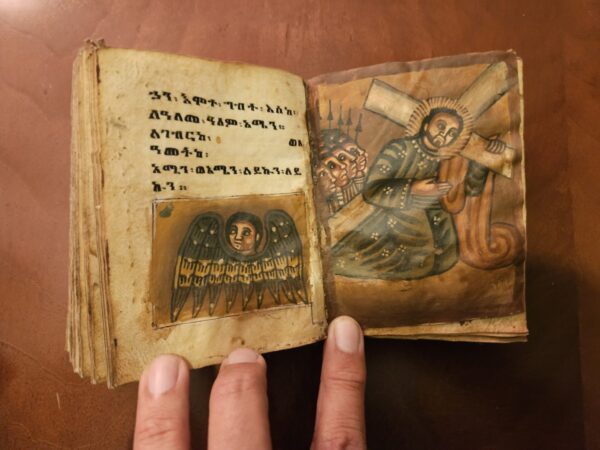 ኃን፡ እሞተ፡ ግብት፡ እስከ፡
ለዓለመ፡ ዓለም፡ አሜን።
ለገብርከ፡ ወለ
ዓመትከ፡
አሜን፡ ወአሜን፡ ለይኩን፡ ለይ
ኩን።